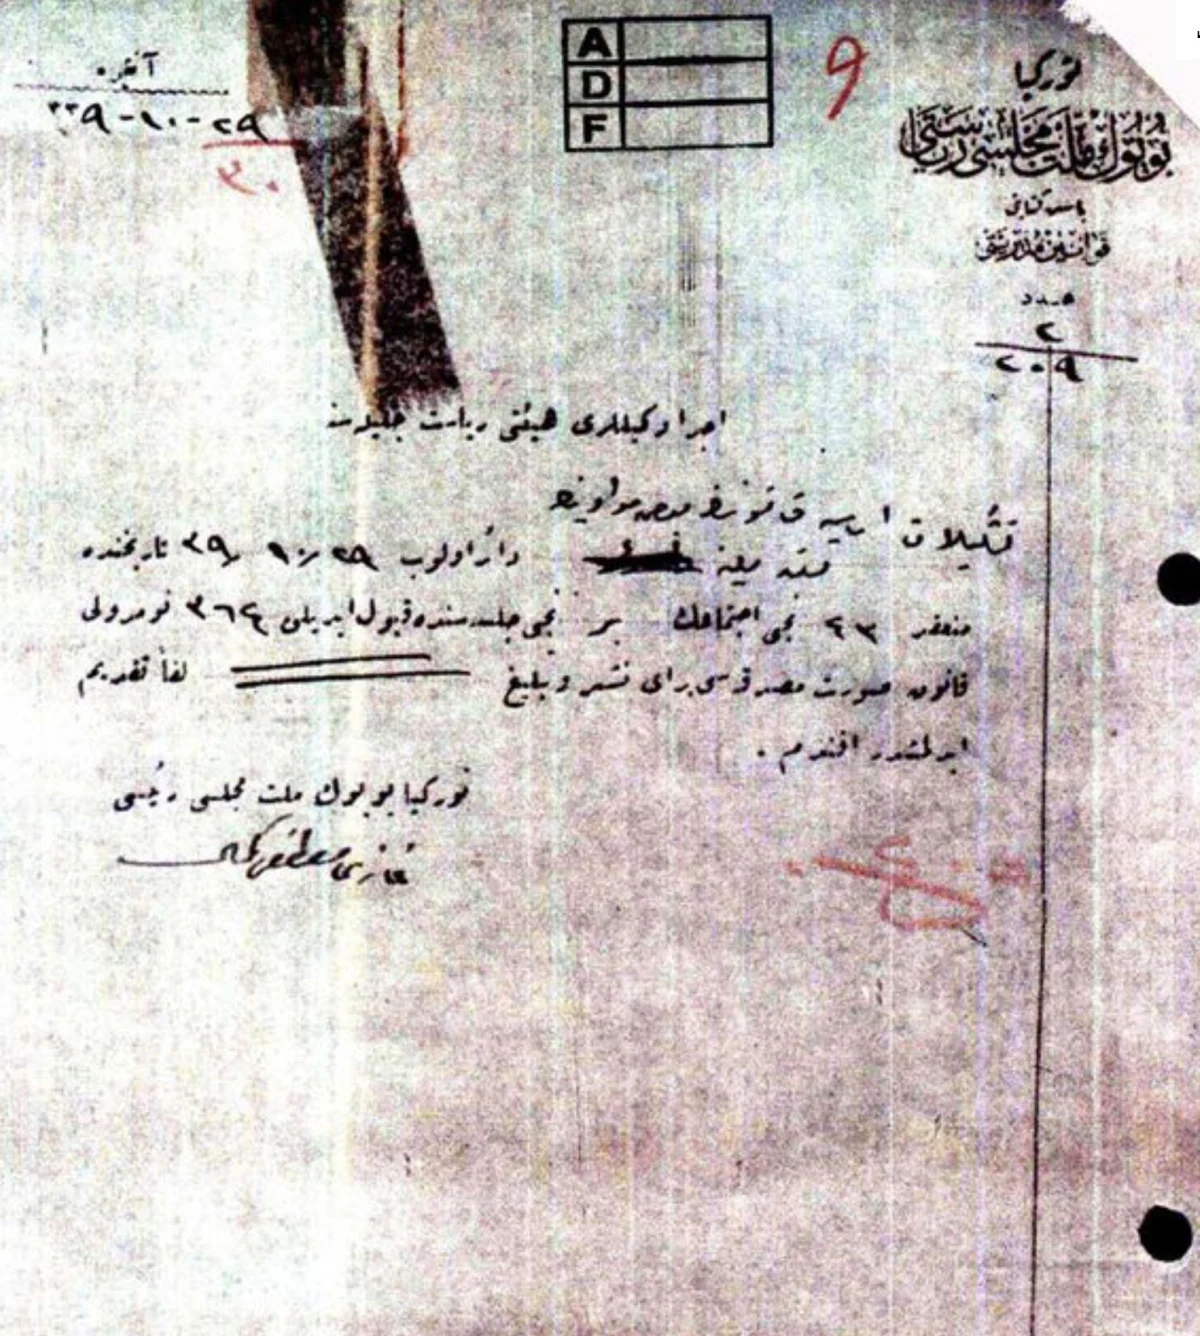 A
D
F
٩
توركيا
بويوك ملت مجلسى رياستى
باش كتابتى
قوانين مديريتى
عدد
٢
٢٠٩
آنقره
٢٩-١٠-٣٣٩
٣٠
اجرا وكيللرى هيئتى رياست جليله سنه
تشكيلات اساسيه قانوننك بعض موادينك
دائر اولوب ٢٩/١٠/٣٩ تاريخنده
منعقد ٤٣ نجى اجتماعك بر نجى جلسه سنده قبول ايديلن ٣٦٤ نومرولى
قانون صورت مصدقه سى براى نشر و تبليغ لفاً تقديم
ايدلمشدر افندم .
توركيا بويوك ملت مجلسى رئيسى
غازى مصطفى كمال